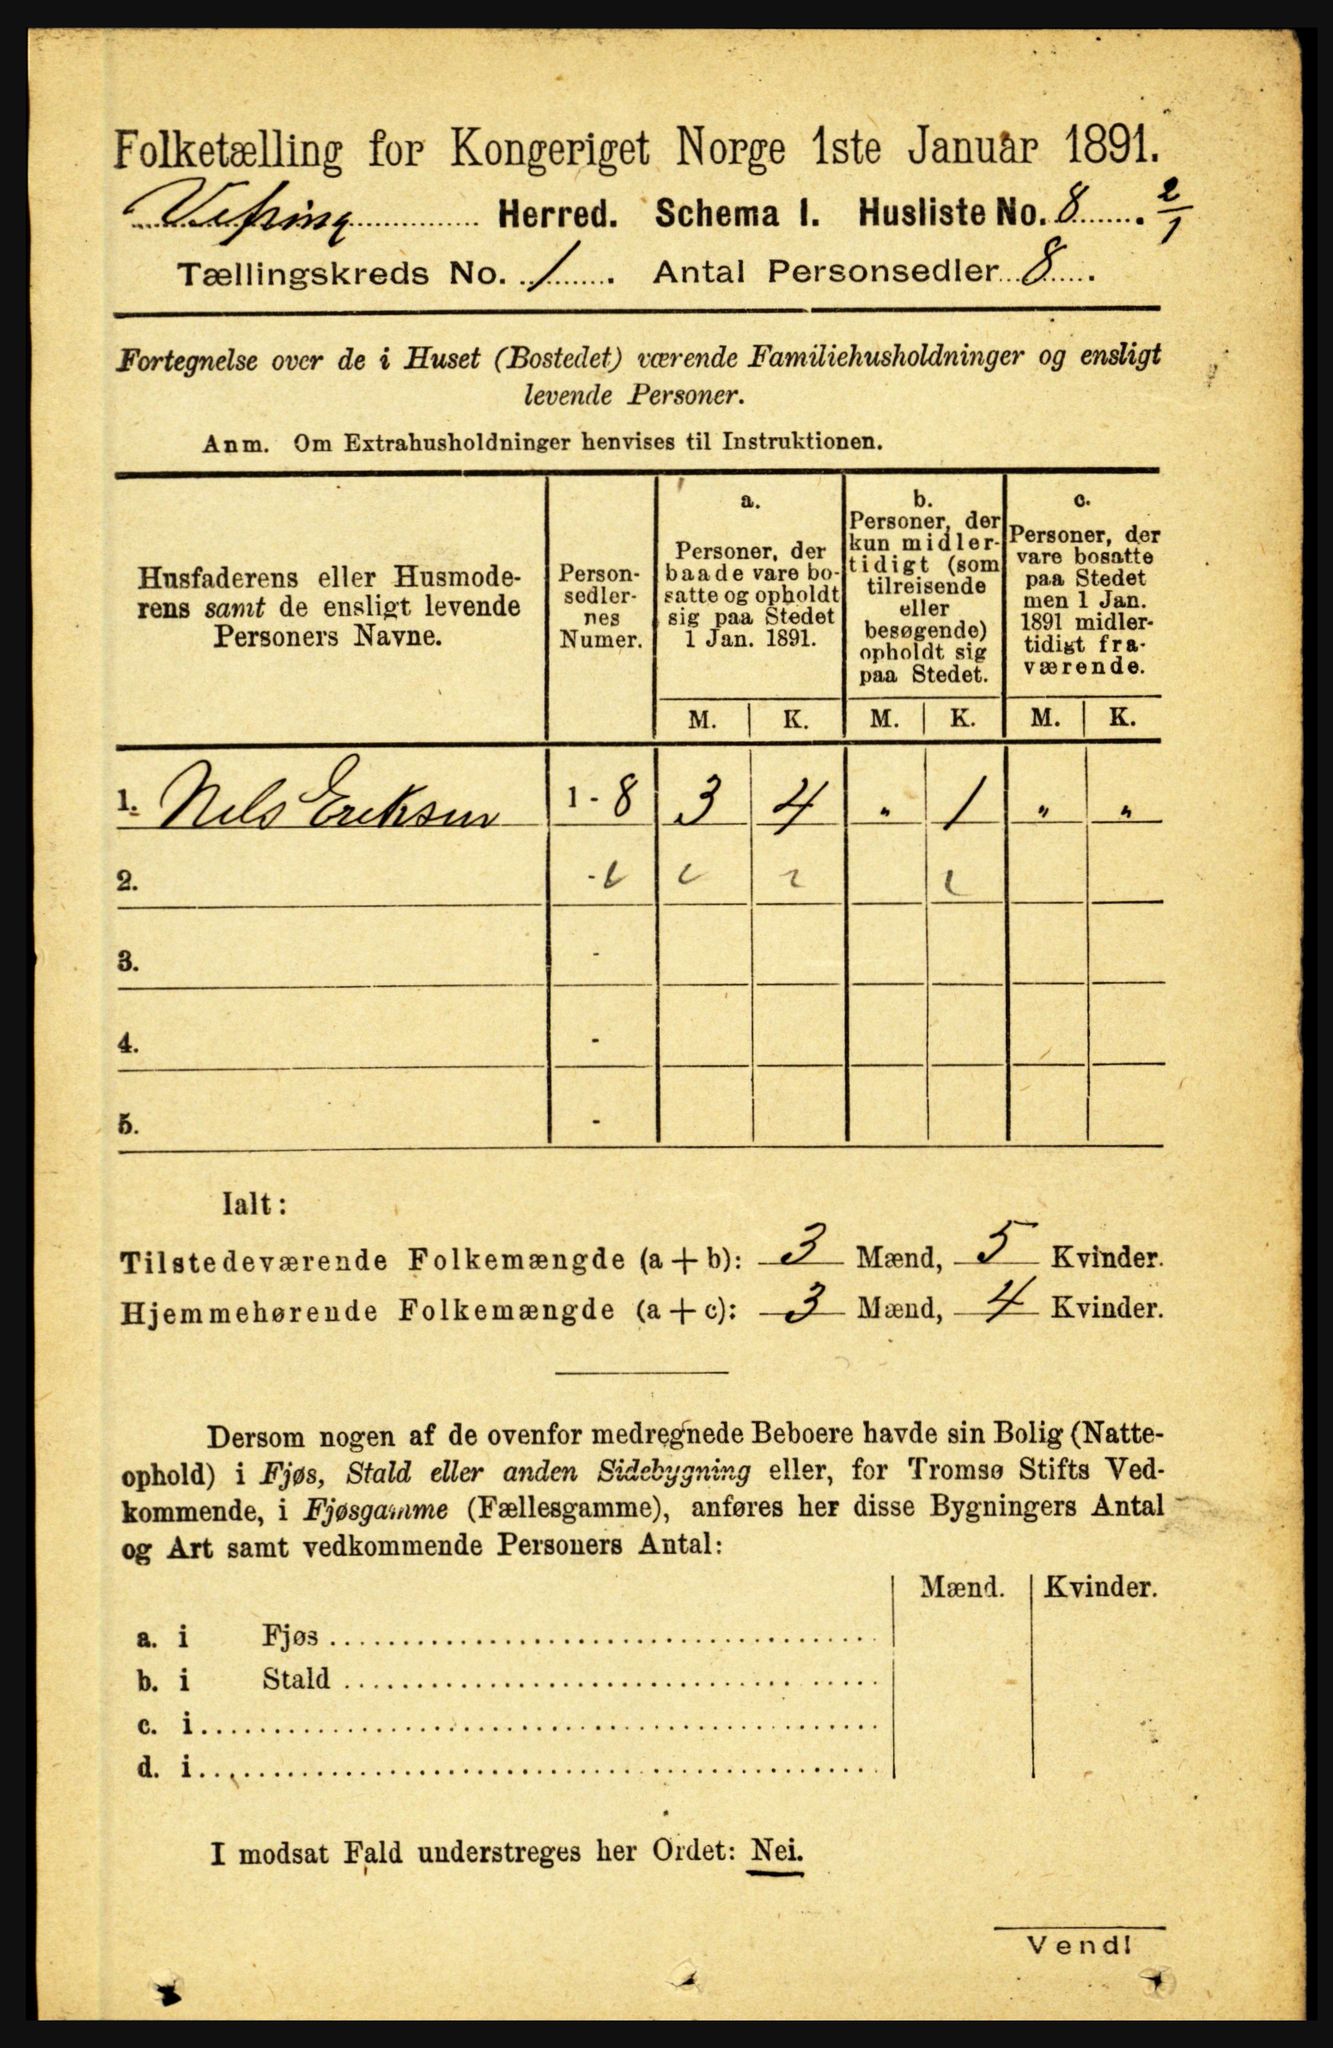 Folketælling for Kongeriget Norge 1ste Januar 1891.
Vefsing Herred. Schema I. Husliste No. 8. 2/1
Tællingskreds No. 1. Antal Personsedler 8.
Fortegnelse over de i Huset (Bostedet) værende Familiehusholdninger og ensligt
levende Personer.
Anm. Om Extrahusholdninger henvises til Instruktionen.
Husfaderens eller Husmode-
rens samt de ensligt levende
Personers Navne.
Person-
sedler-
nes
Numer.
a.
Personer, der
baade vare bo-
satte og opholdt
sig paa Stedet
1 Jan. 1891.
b.
Personer, der
kun midler-
tidigt (som
tilreisende
eller
besøgende)
opholdt sig
paa Stedet.
c.
Personer, der
vare bosatte
paa Stedet
men 1 Jan.
1891 midler-
tidigt fra-
værende.
M. K. M. K. M. K.
1. Nils Eriksen 1 - 8 3 4 " 1 " "
2. -
3. -
4. -
5. -
Ialt:
Tilstedeværende Folkemængde (a + b): 3 Mænd, 5 Kvinder.
Hjemmehørende Folkemængde (a + c): 3 Mænd, 4 Kvinder.
Dersom nogen af de ovenfor medregnede Beboere havde sin Bolig (Natte-
ophold) i Fjøs, Stald eller anden Sidebygning eller, for Tromsø Stifts Ved-
kommende, i Fjøsgamme (Fællesgamme), anføres her disse Bygningers Antal
og Art samt vedkommende Personers Antal:
Mænd. Kvinder.
a. i Fjøs
b. i Stald
c. i
d. i
I modsat Fald understreges her Ordet: Nei.
Vend!